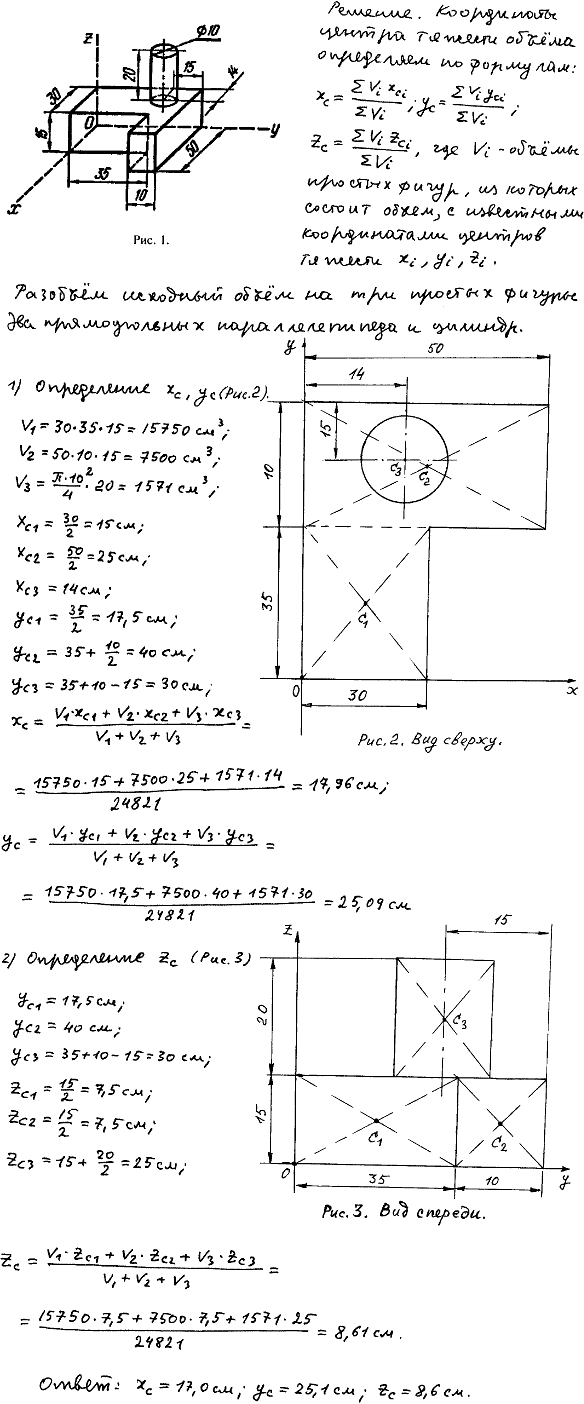 z
Ø10
20
15
14
30
O
15
y
50
35
10
x
Рис. 1.
Решение. Координаты
центра тяжести объёма
определяем по формулам:
xc = ΣVi xci / ΣVi ; yc = ΣVi yci / ΣVi ;
zc = ΣVi zci / ΣVi , где Vi - объёмы
простых фигур, из которых
состоит объем, с известными
координатами центров
тяжести xi, yi, zi.
Разобъём исходный объём на три простых фигуры
два прямоугольных параллелепипеда и цилиндр.
1) Определение xc, yc (Рис.2).
V1 = 30·35·15 = 15750 см³;
V2 = 50·10·15 = 7500 см³;
V3 = π·10²/4 · 20 = 1571 см³;
xc1 = 30/2 = 15 см;
xc2 = 50/2 = 25 см;
xc3 = 14 см;
yc1 = 35/2 = 17,5 см;
yc2 = 35 + 10/2 = 40 см;
yc3 = 35+10-15 = 30 см;
xc = V1·xc1 + V2·xc2 + V3·xc3 / V1 + V2 + V3 =
y
50
14
15
10
C3
C2
35
C1
O
30
x
Рис.2. Вид сверху.
= 15750·15 + 7500·25 + 1571·14 / 24821 = 17,96 см;
yc = V1·yc1 + V2·yc2 + V3·yc3 / V1 + V2 + V3 =
= 15750·17,5 + 7500·40 + 1571·30 / 24821 = 25,09 см
2) Определение zc (Рис.3)
yc1 = 17,5 см;
yc2 = 40 см;
yc3 = 35+10-15 = 30 см;
zc1 = 15/2 = 7,5 см;
zc2 = 15/2 = 7,5 см;
zc3 = 15 + 20/2 = 25 см;
z
15
20
C3
15
C1
C2
O
35
10
y
Рис.3. Вид спереди.
zc = V1·zc1 + V2·zc2 + V3·zc3 / V1 + V2 + V3 =
= 15750·7,5 + 7500·7,5 + 1571·25 / 24821 = 8,61 см.
Ответ: xc = 17,0 см; yc = 25,1 см; zc = 8,6 см.